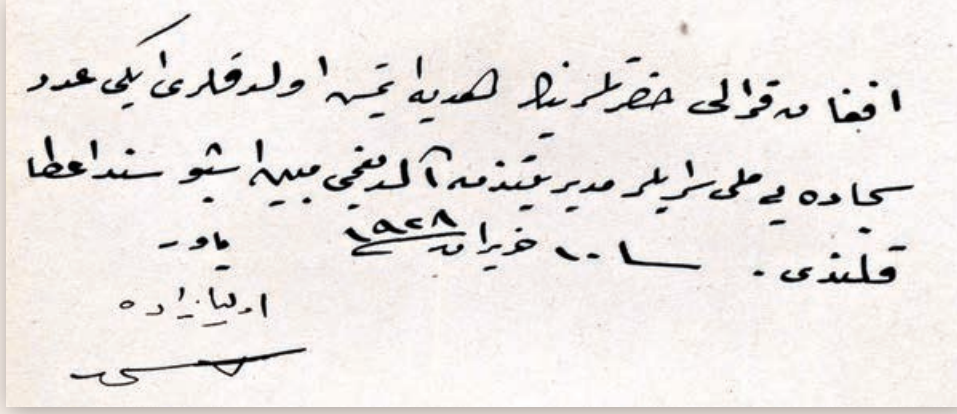 افغان قرالی حضرتلرينك هديه ايتمش اولدقلری ايكی عدد
سجاده يی ملی سرايلر مديريتندن آلديغمی مبين اشبو سند اعطا
قلندی. ١٠ حزيران ١٩٢٨
ياور
اوليازاده